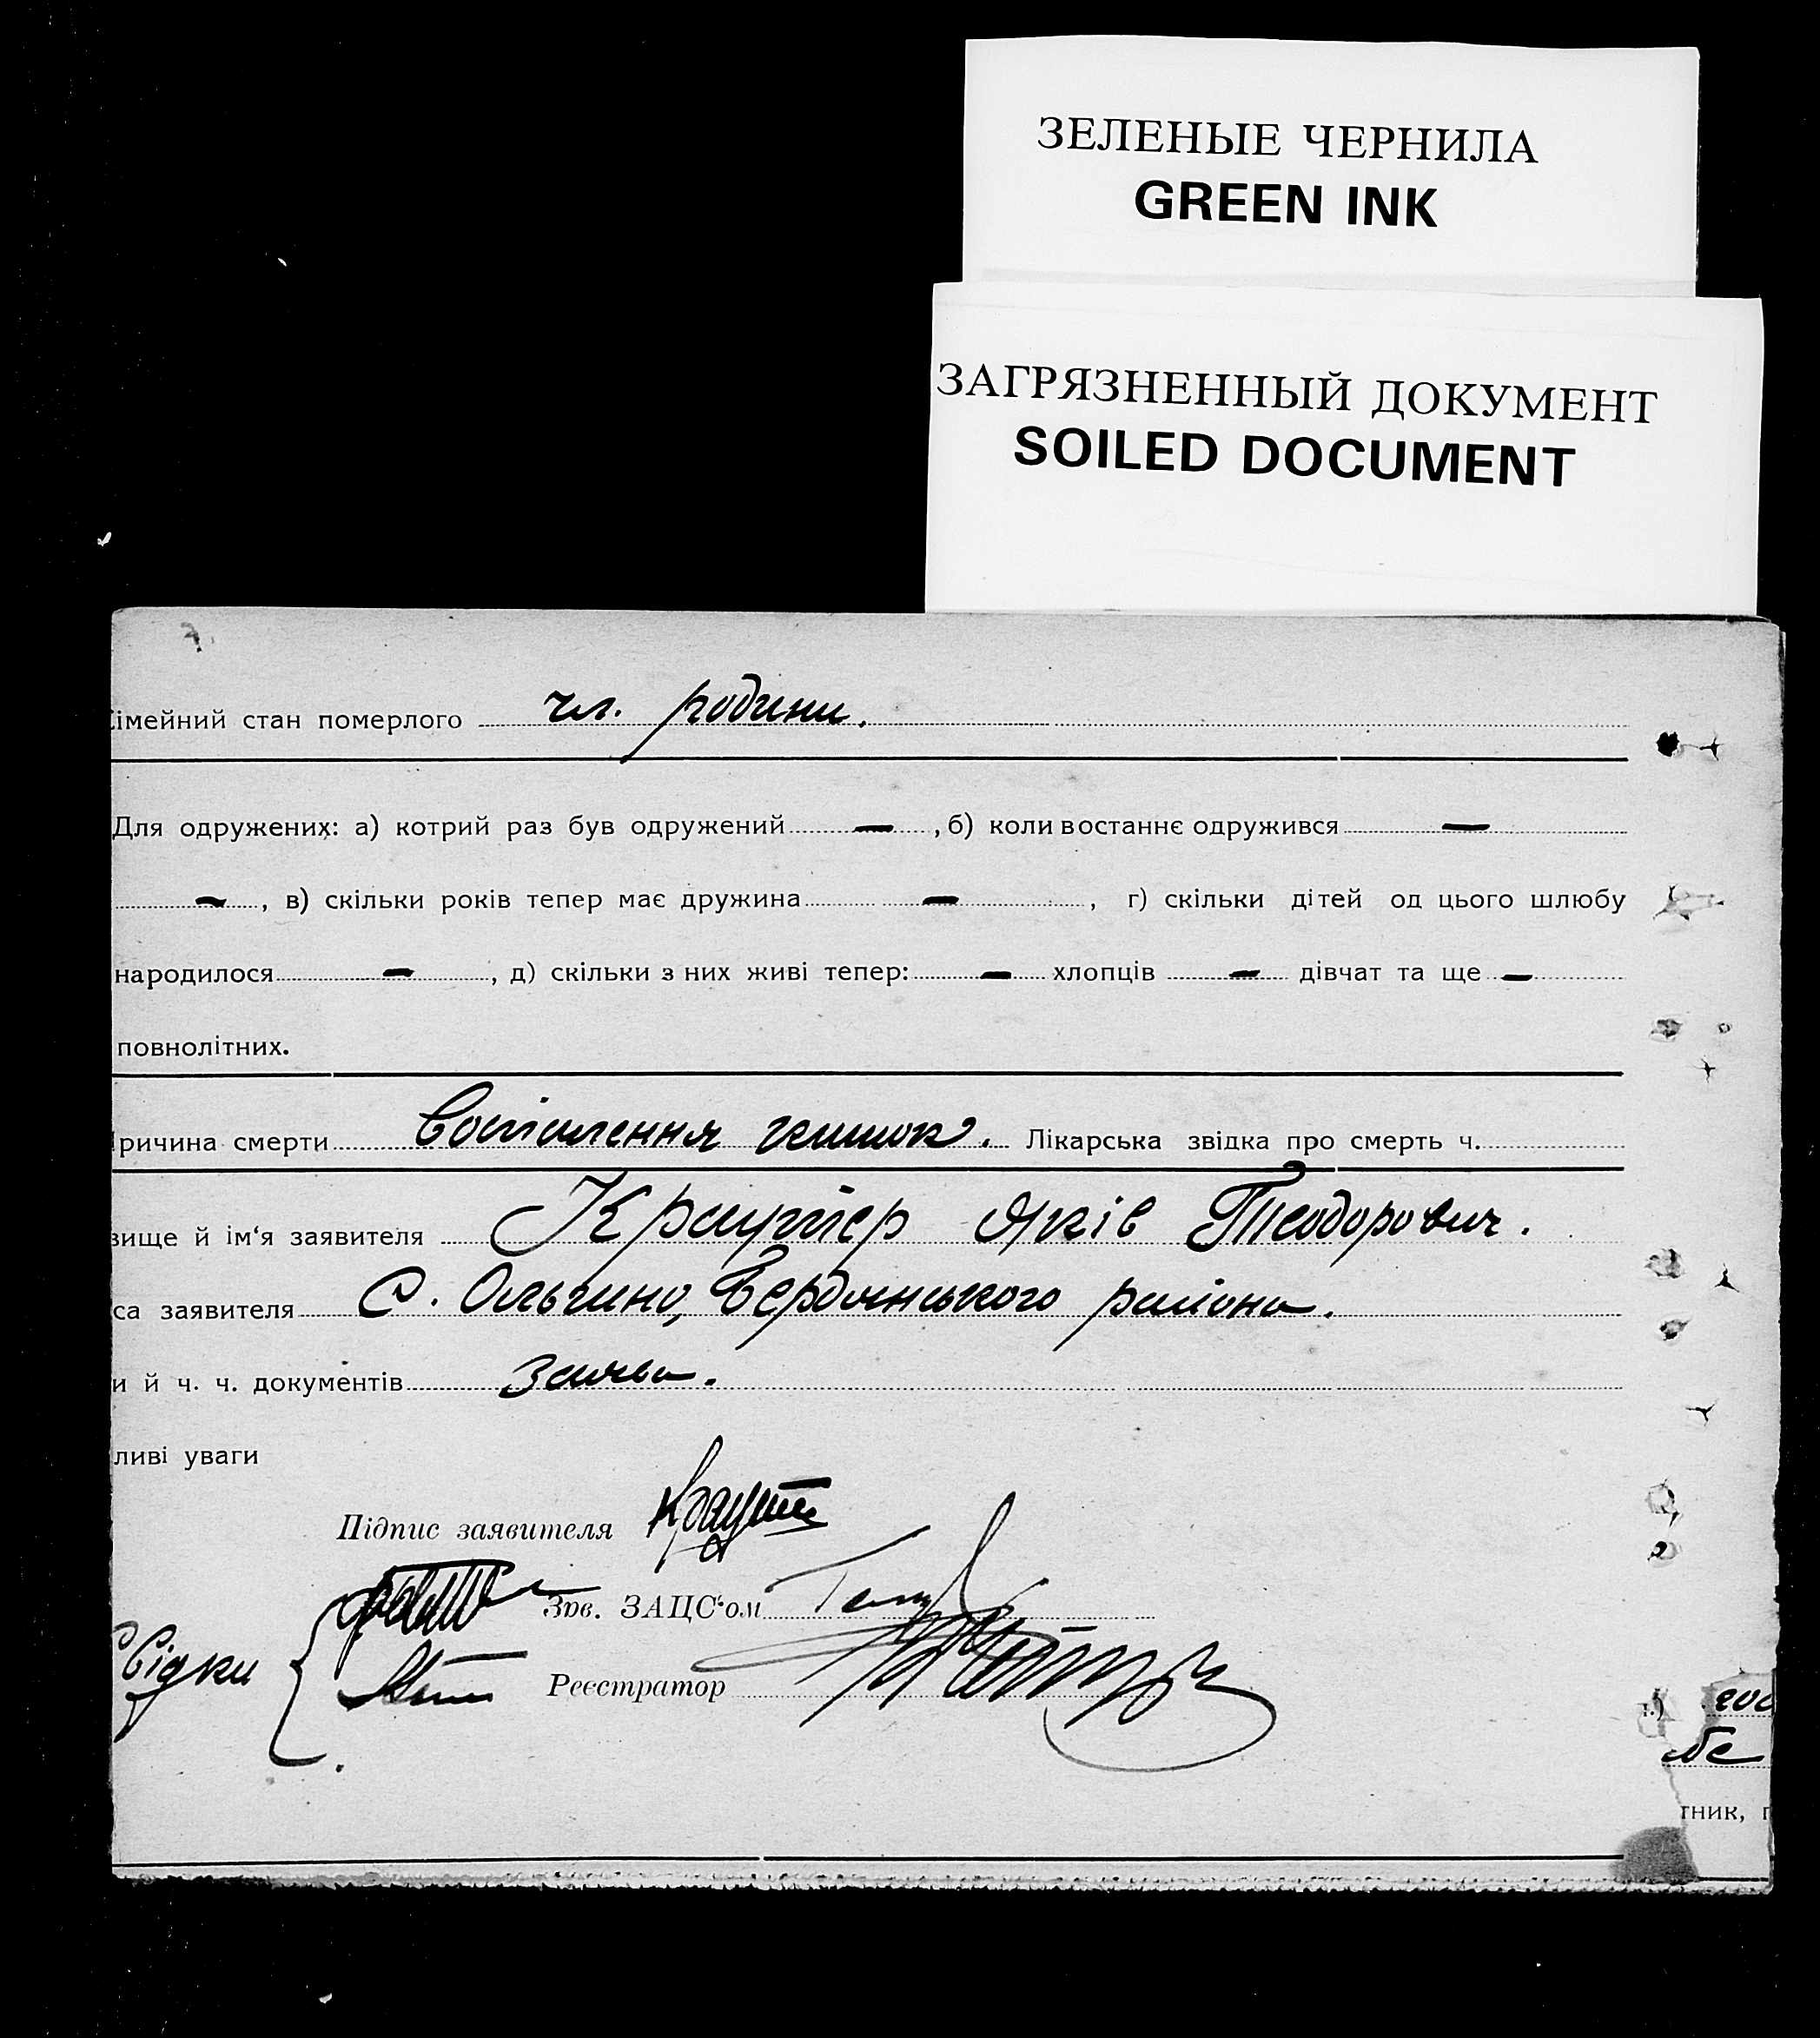 ЗЕЛЕНЫЕ ЧЕРНИЛА
GREEN INK
ЗАГРЯЗНЕННЫЙ ДОКУМЕНТ
SOILED DOCUMENT
імейний стан померлого чл. родини.
Для одружених: а) котрий раз був одружений — , б) коли востаннє одружився —
— , в) скільки років тепер має дружина — , г) скільки дітей од цього шлюбу
народилося — , д) скільки з них живі тепер: — хлопців — дівчат та ще —
повнолітних.
ричина смерти Воспалення кишок. Лікарська звідка про смерть ч.
вище й ім‘я заявителя Краутер Яків Теодорович.
са заявителя С. Ольгино, Бердянського района.
и й ч. ч. документів Заява.
ливі уваги
Підпис заявителя
Зав. ЗАЦС‘ом
Свідки
Реєстратор
тник,